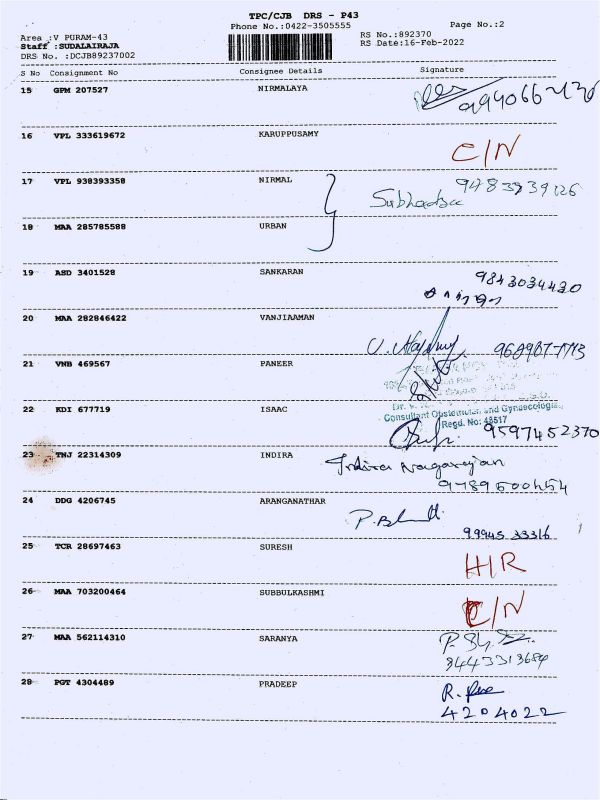 TPC/CJB DRS - P43
Phone No.:0422-3505555
Page No.:2
Area :V PURAM-43
RS No.:892370
Staff :SUDALAIRAJA
RS Date:16-Feb-2022
DRS No. :DCJB89237002
S No Consignment No Consignee Details Signature
15 GPM 207527 NIRMALAYA
16 VPL 333619672 KARUPPUSAMY C/N
17 VPL 938393358 NIRMAL
Subhadra
18 MAA 285785588 URBAN
19 ASD 3401528 SANKARAN 9843034430
20 MAA 282846422 VANJIAAMAN
21 VNB 469567 PANEER
22 KDI 677719 ISAAC
Consultant Obstetrician and Gynaecologist
Regd. No: 48517
9597452370
23 TNJ 22314309 INDIRA Indira Nagarajan
9789500454
24 DDG 4206745 ARANGANATHAR
99945 33316
25 TCR 28697463 SURESH H/R
26 MAA 703200464 SUBBULKASHMI C/N
27 MAA 562114310 SARANYA
3443313684
28 PGT 4304489 PRADEEP
4204022